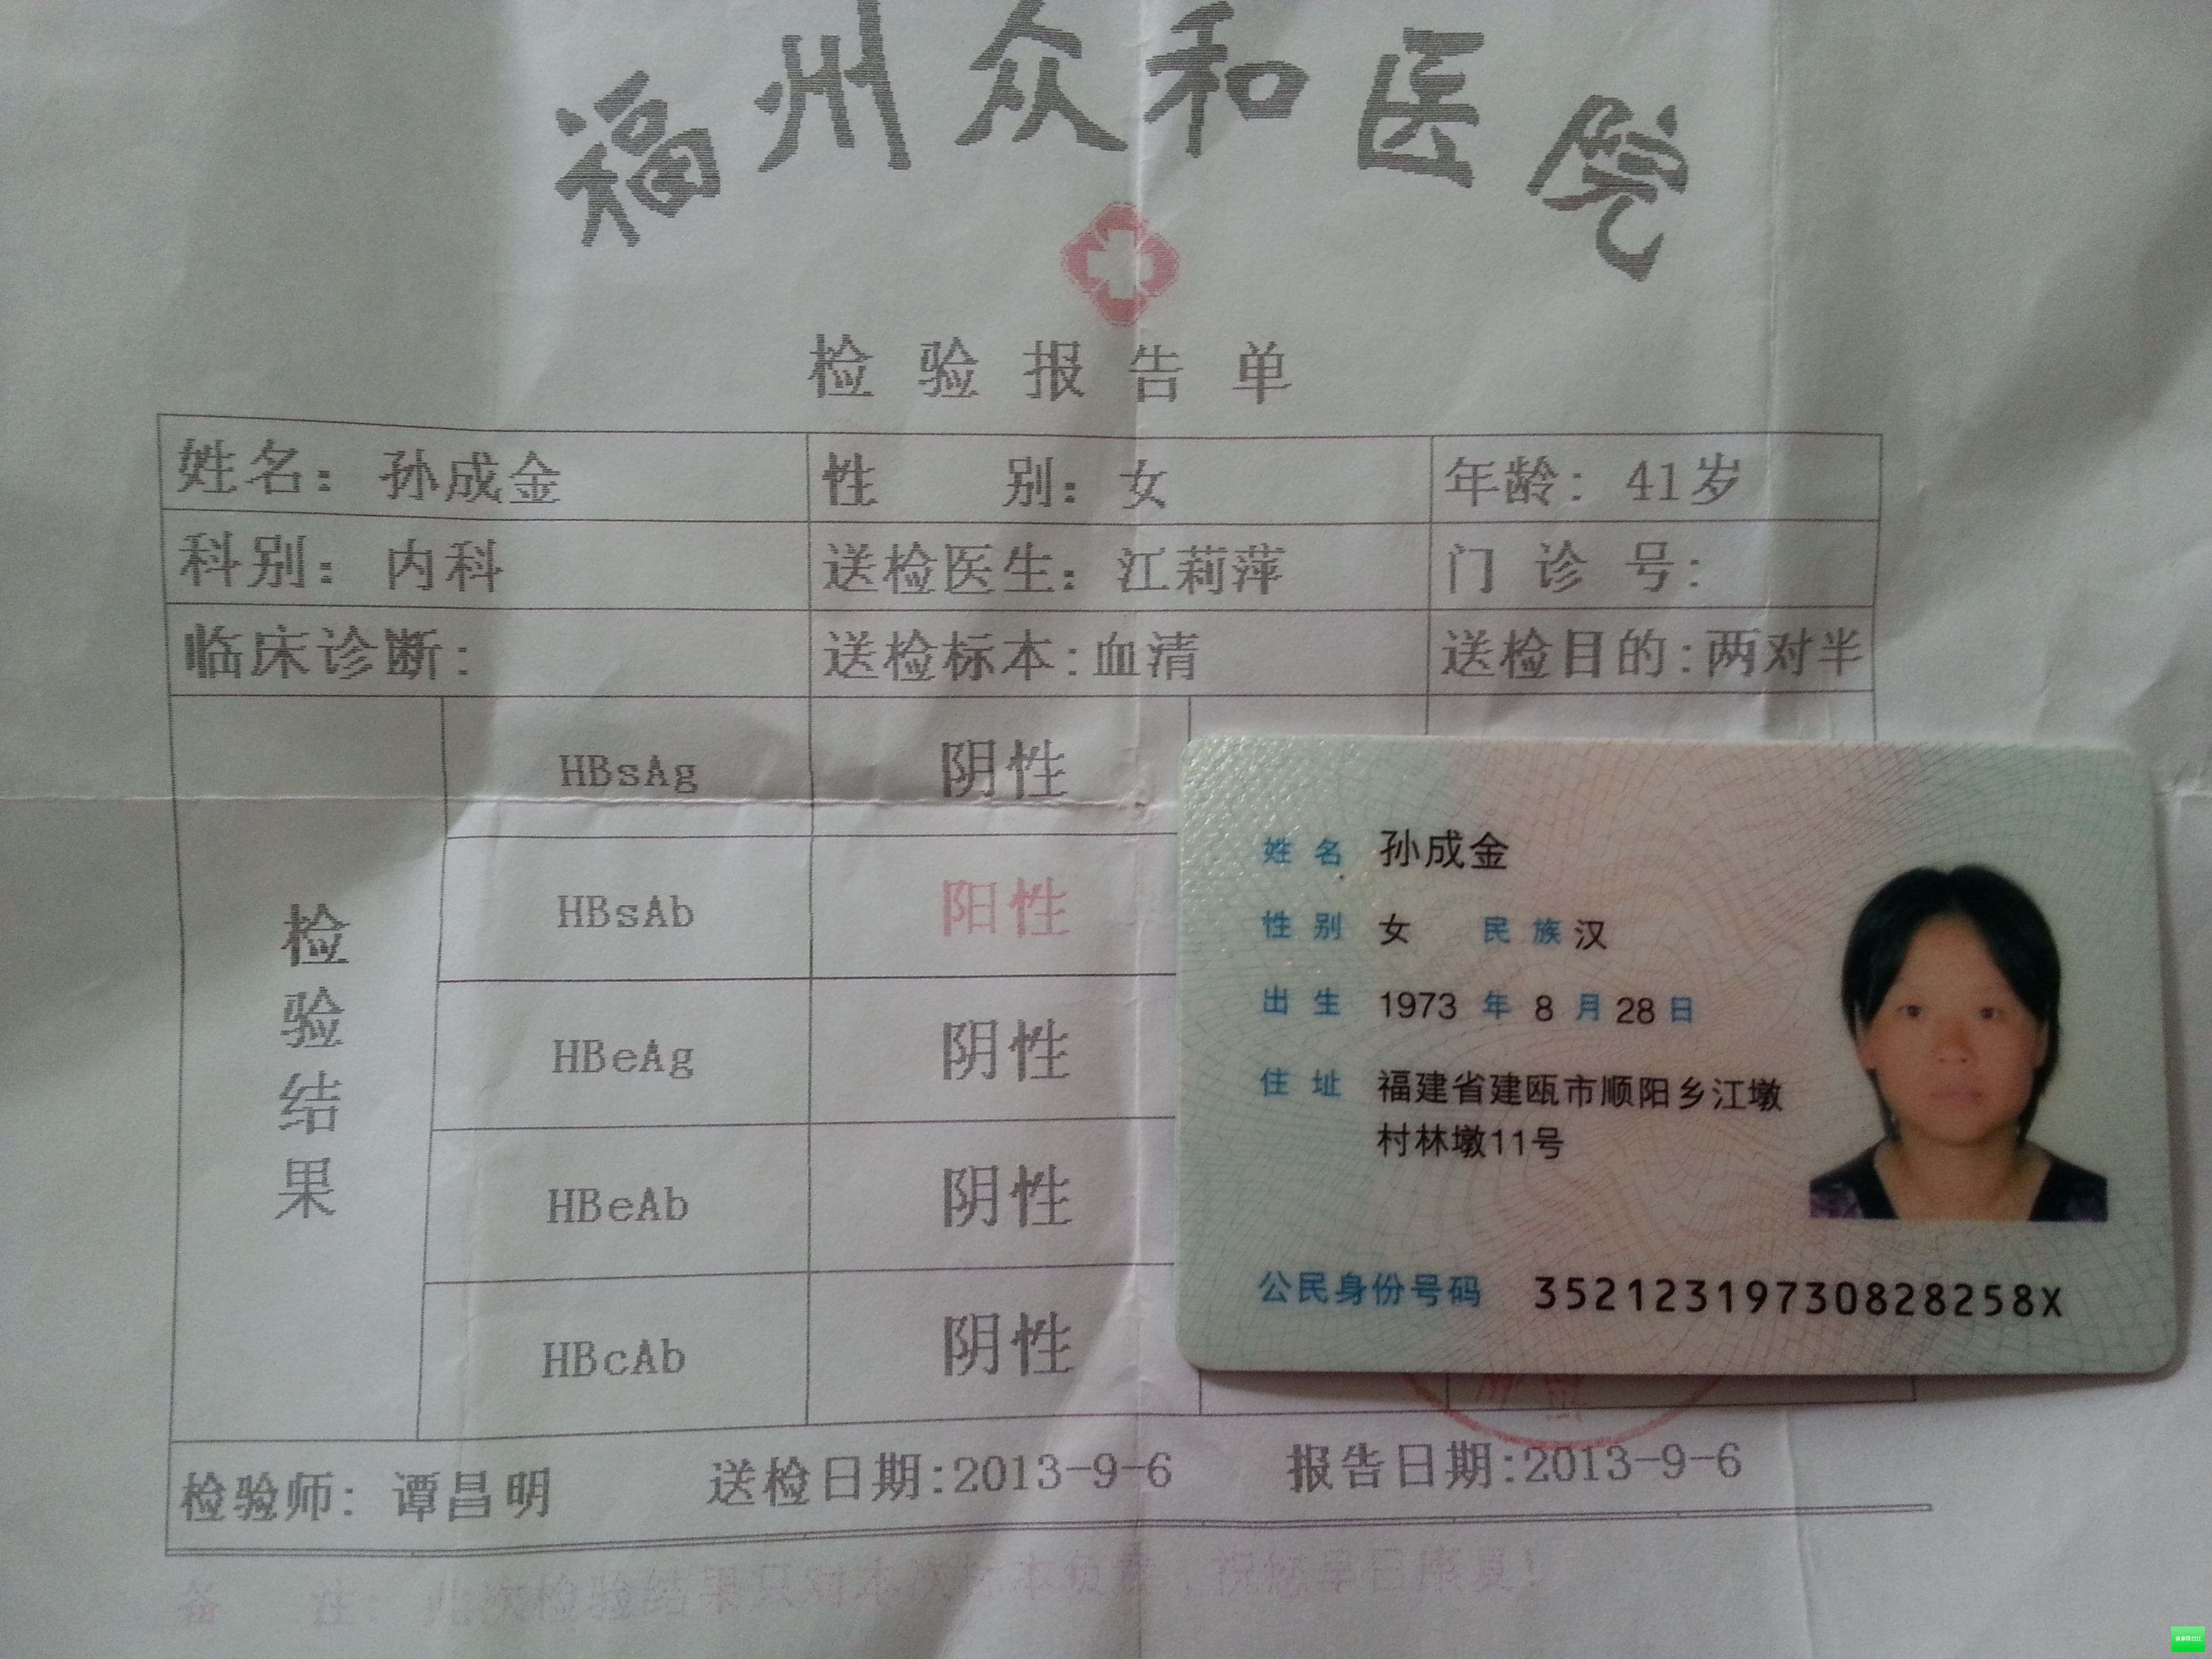 福州众和医院
检验报告单
姓名：孙成金 性别：女 年龄：41岁
科别：内科 送检医生：江莉萍 门诊号：
临床诊断： 送检标本：血清 送检目的：两对半
检验结果
HBsAg 阴性
HBsAb 阳性
HBeAg 阴性
HBeAb 阴性
HBcAb 阴性
检验师：谭昌明 送检日期：2013-9-6 报告日期：2013-9-6
备注：此次检验结果只对本次标本负责，祝您早日康复！
姓名 孙成金
性别 女 民族 汉
出生 1973 年 8 月 28 日
住址 福建省建瓯市顺阳乡江墩
村林墩11号
公民身份号码 35212319730828258X